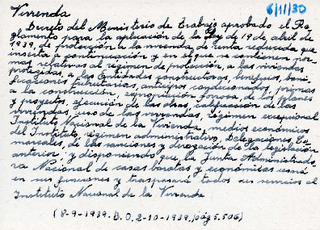 Vivienda
6/11/80
Decreto del Ministerio de Trabajo aprobado el Re-
glamento para la aplicación de la Ley de 19 de abril de
1939, de protección a la vivienda de renta reducida que
inserta a continuación y en el que se contienen nor-
mas relativas al régimen de protección, a las viviendas
protegidas, a las Entidades constructoras, beneficios, boni-
ficaciones tributarias, anticipos, condicionados, primas
a la construcción, expropiación forzosa, de los planes
y proyectos, ejecución de las obras, calificación de las
viviendas, uso de las viviendas, régimen excepcional
Instituto Nacional de la Vivienda, medios económicos
del Instituto, régimen administrativo, delegaciones Co-
marcales, de las sanciones y derogación de la legislación
anterior; y disponiendo que la Junta Administrado-
ra Nacional de casas baratas y económicas cesará
en sus funciones y traspasará todos sus servicios al
Instituto Nacional de la Vivienda
(8-9-1939. B.O. 2-10-1939, pág 5.506)